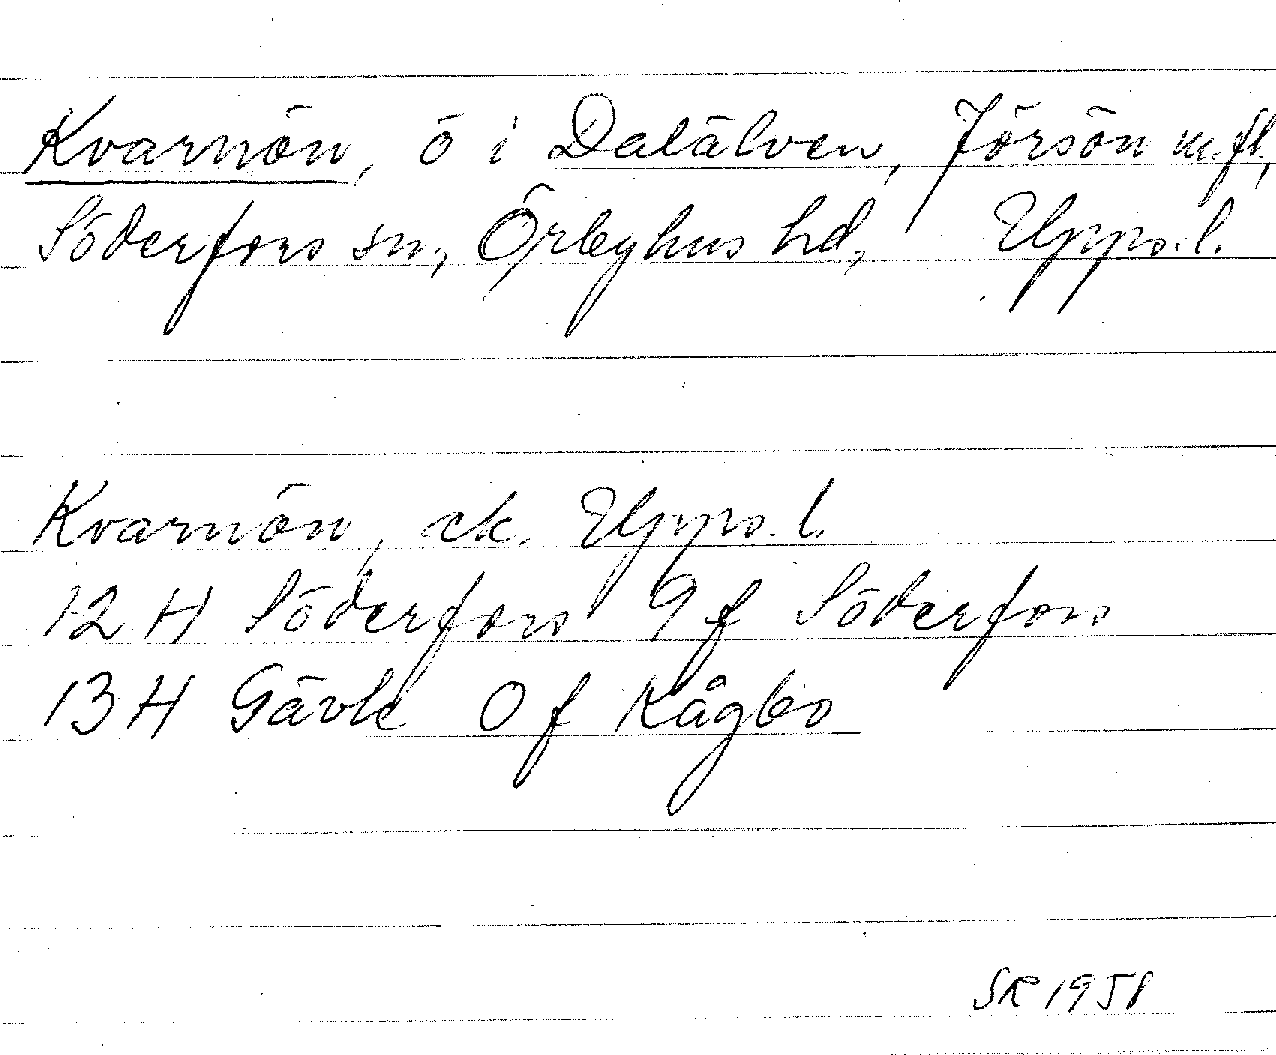 Kvarnön, ö i Dalälven, Jörsön m.fl,
Söderfors sn, Örbyhus hd, Upps.l.
Kvarnön, ek. Upps.l.
12 H Söderfors 9 f Söderfors
13 H Gävle 0 f Kågbo
SR 1958